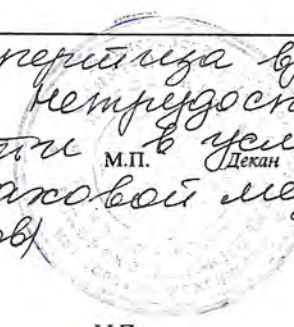 пертиза в
нетрудосп
ти в усл
М.П. Декан
аховой ме
ов)
М.П.